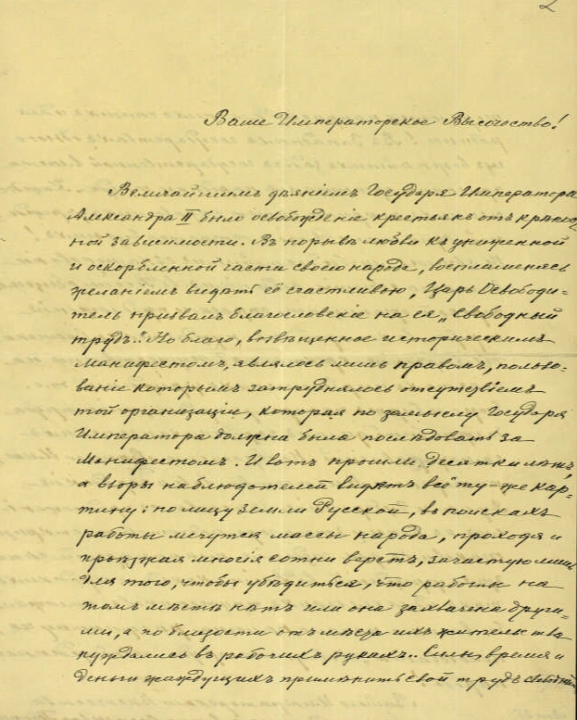 2
Ваше Императорское Высочество!
Величайшимъ дѣянiемъ Государя Императора
Александра II было освобожденiе крестьянъ отъ крѣпост-
ной зависимости. Въ порывѣ любви къ униженной
и оскорбленной части своего народа, воспламеняясь
желанiемъ видѣть её счастливою, "Царь Освободи-
тель призвалъ благословенiе на ея "свободный
трудъ". Но благо, возвѣщенное историческимъ
Манифестомъ, являлось лишь правомъ, пользо-
ванiе которымъ затруднялось отсутствiемъ
той организацiи, которая по замыслу Государя
Императора должна была послѣдовать за
Манифестомъ. И вотъ прошли десятки лѣтъ,
а взоры наблюдателей видятъ всё ту-же кар-
тину: по лицу земли Русской, въ поискахъ
работы мечутся массы народа, проходя и
проѣзжая многiя сотни верстъ, зачастую лишь
для того, чтобы убѣдиться, что работы на
томъ мѣстѣ нѣтъ или она захвачена други-
ми, а по близости отъ мѣста ихъ жительства
нуждались въ рабочихъ рукахъ. Силы, время и
деньги жаждущихъ примѣнить свой трудъ